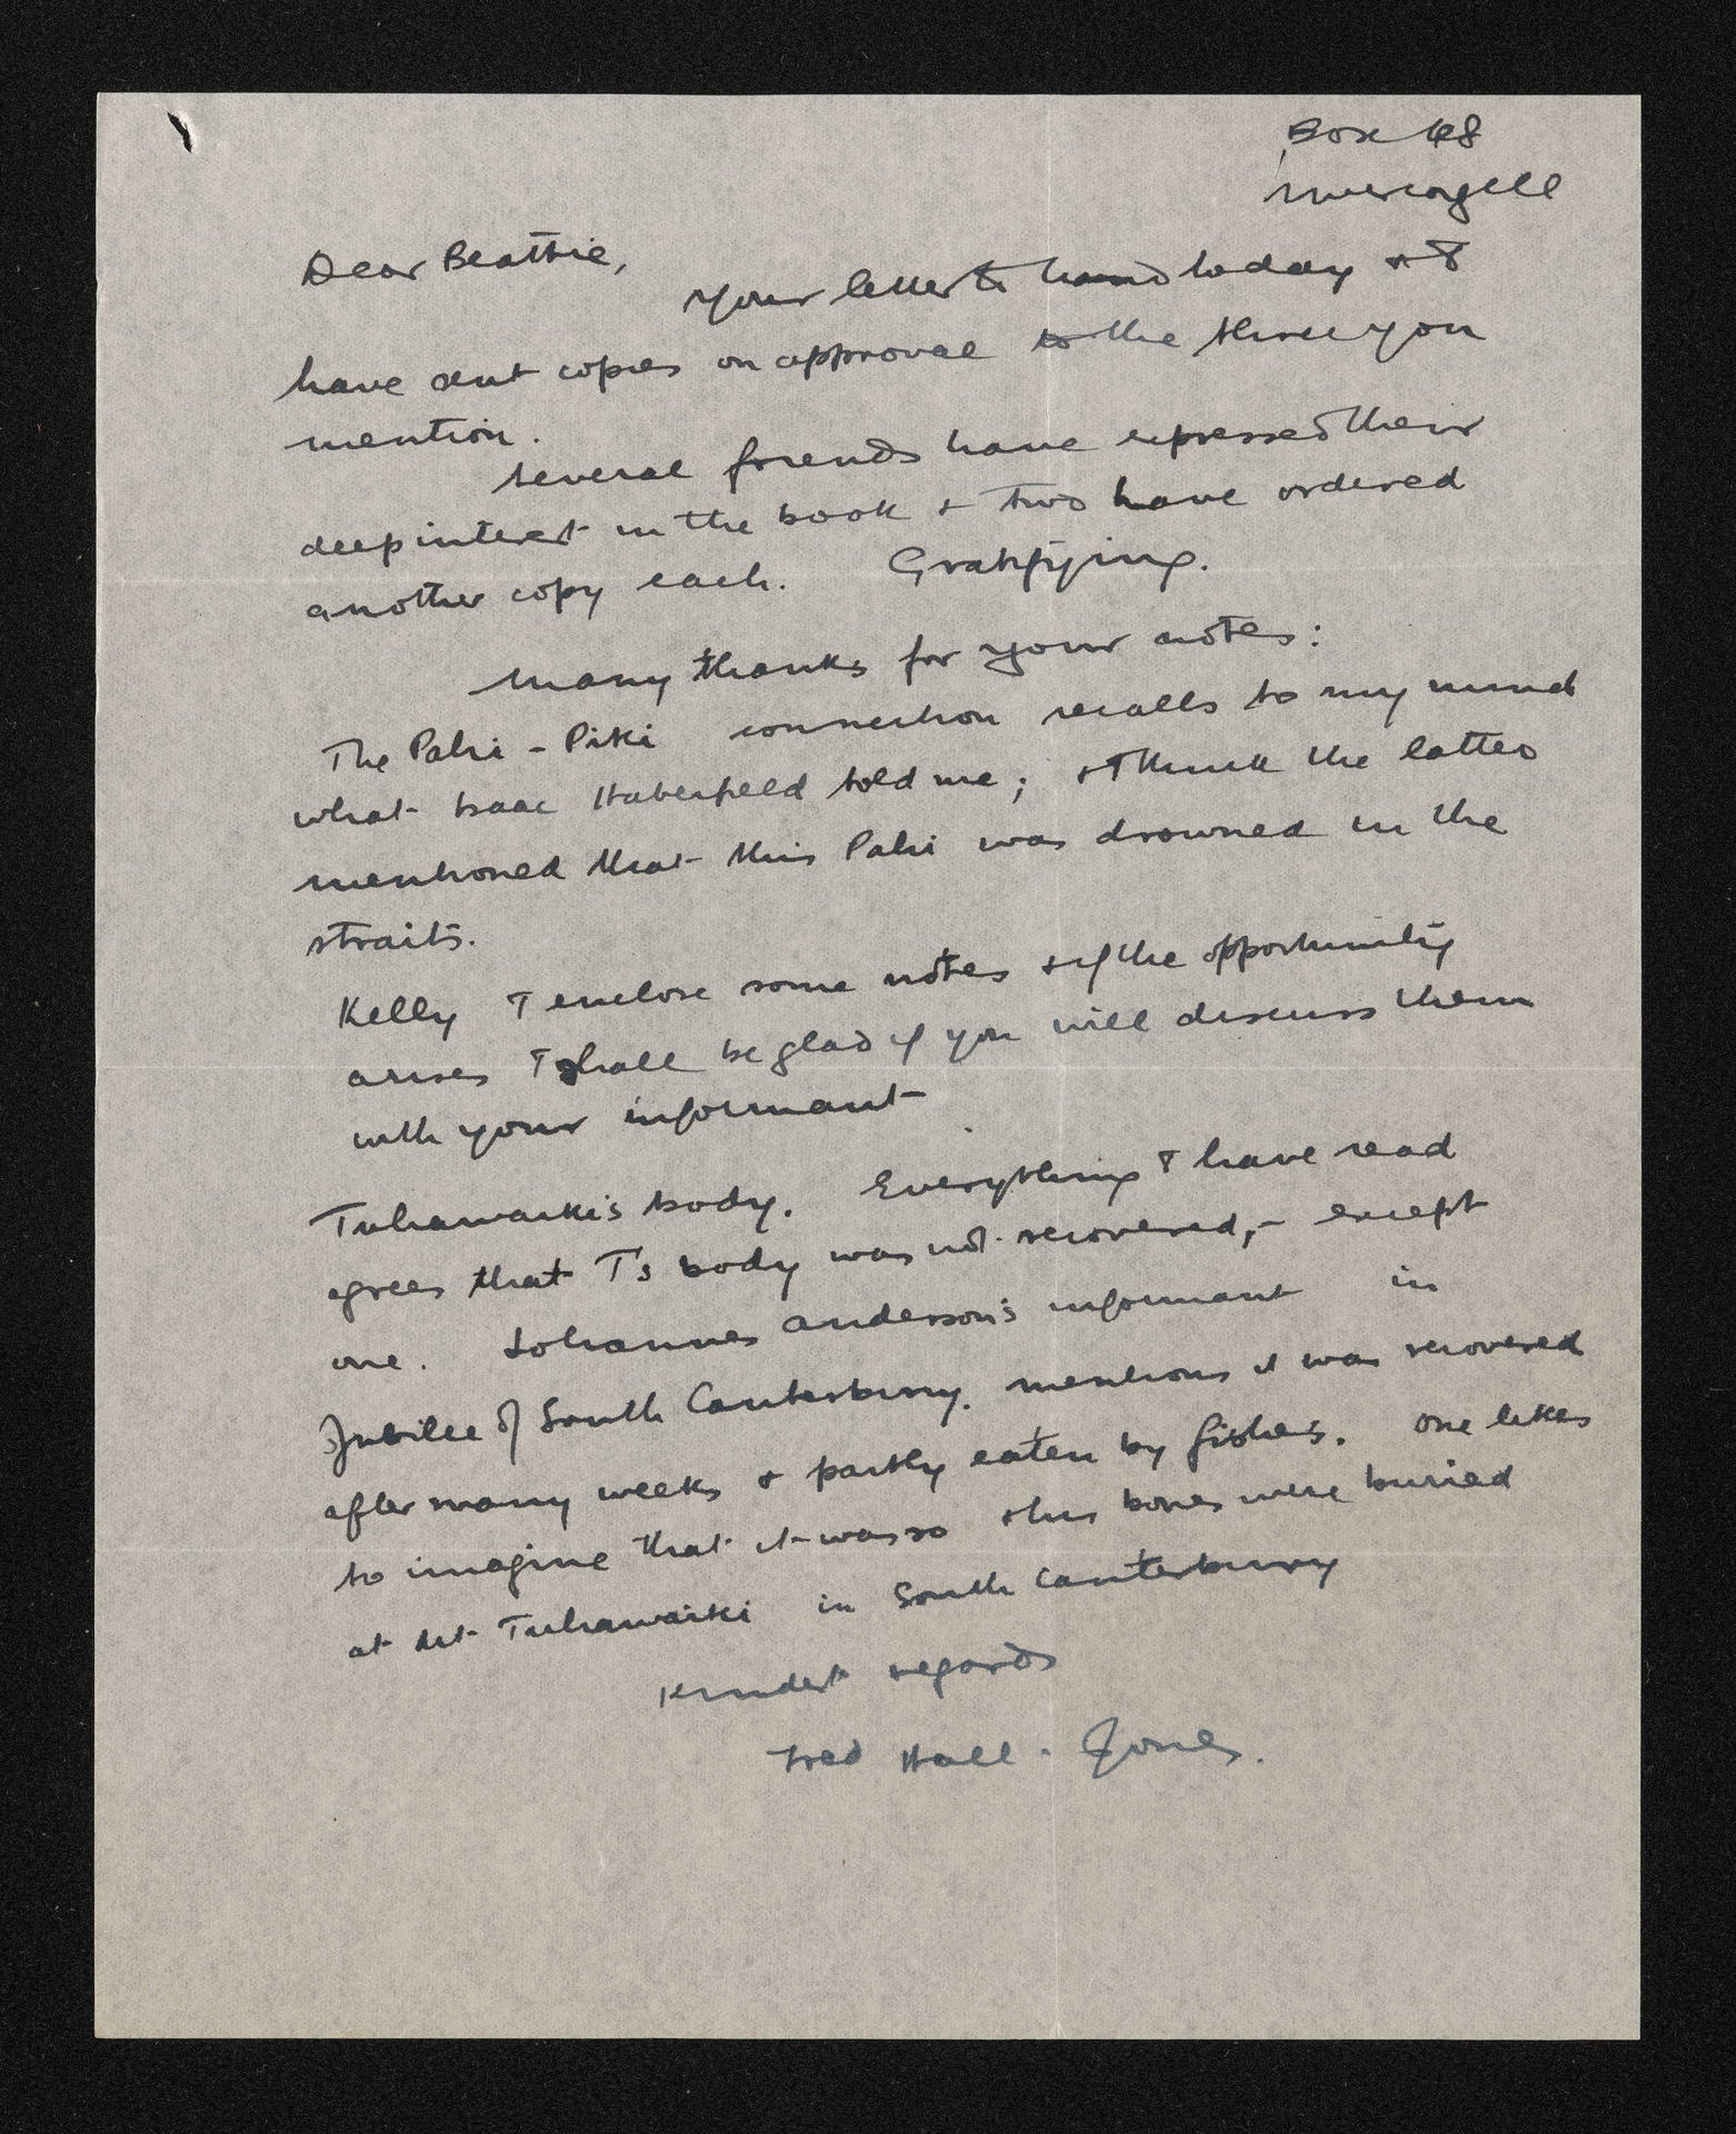 Box 68
Invercargill
Dear Beattie,
Your letter to hand today & I
have sent copies on approval to the three you
mention.
Several friends have expressed their
deep interest in the book & two have ordered
another copy each. Gratifying.
Many thanks for your notes:
The Pahi - Piki connection recalls to my mind
what Isaac Haberfield told me; & I think the latter
mentioned that this Pahi was drowned in the
straits.
Kelly I enclose some notes & if the opportunity
arises I shall be glad if you will discuss them
with your informant
Tuhawaiki's body. Everything I have read
agrees that T's body was not recovered, - except
one. Johannes Anderson's informant in
Jubilee of South Canterbury. mentions it was recovered
after many weeks & partly eaten by fishes. One likes
to imagine that it was so & his bones were buried
at Mt Tuhawaiki in South Canterbury
Kindest regards
Fred Hall-Jones.